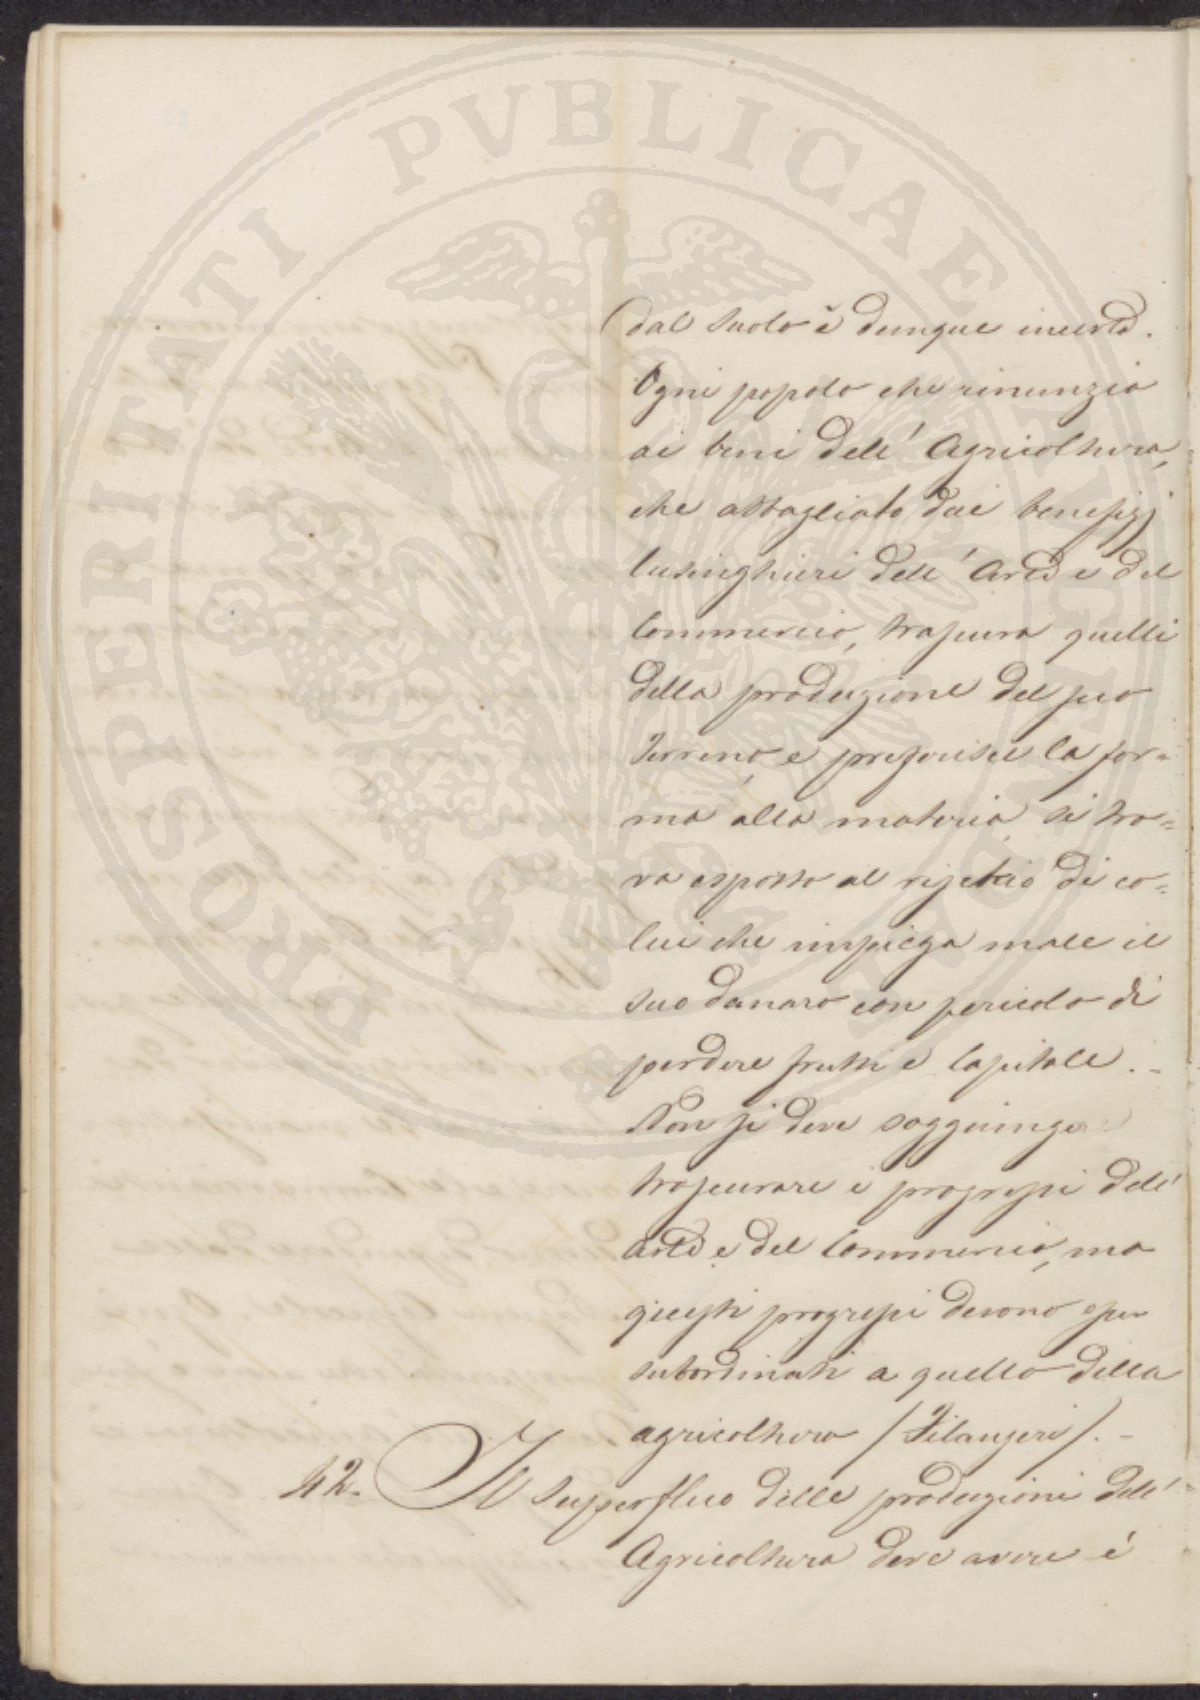 PROSPERITATI PVBLICAE
dal suolo è dunque incerta.
Ogni popolo che rinunzia
ai beni dell' Agricoltura,
che abbagliato dai benefizj
lusinghieri dell' Arti e del
Commercio, trascura quelli
della produzione del suo
terreno, e preferisce la for=
ma alla materia, si tro=
va esposto al rischio di co=
lui che impiega male il
suo danaro con pericolo di
perdere frutti e Capitale.
Non si deve soggiunge
trascurare i progressi dell'
arti e del Commercio, ma
questi progressi devono esser
subordinati a quello della
agricoltura /Filangeri/.
42. Il superfluo delle produzioni dell'
Agricoltura deve avere è